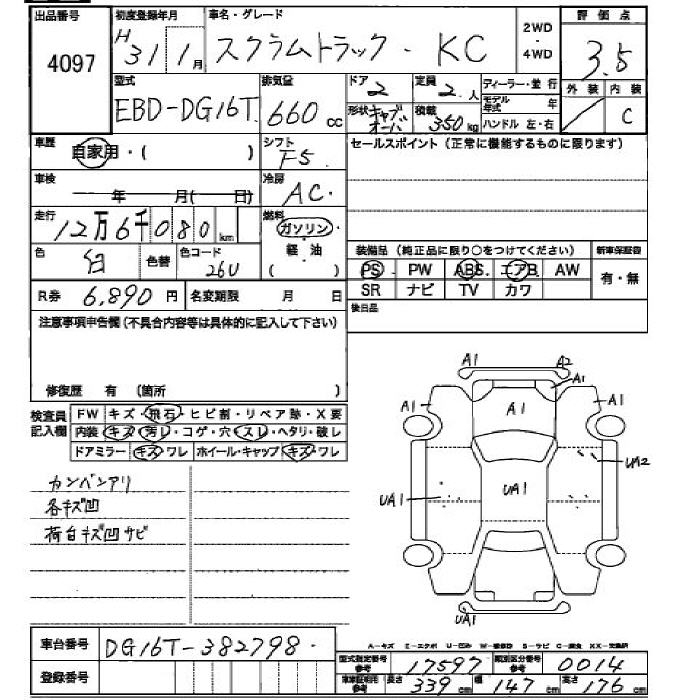 出品番号 初度登録年月 車名・グレード 2WD・4WD 評価点
4097 H31 1月 スクラムトラック・ KC 3.5
型式 排気量 ドア 定員 ディーラー・並行 外装 内装
EBD-DG16T 660 cc 2 2.人 モデル年式 年
形状 キャブオーバ 積載 350kg ハンドル 左・右 C
車歴 自家用・( ) シフト F5 セールスポイント(正常に機能するものに限ります)
車検 年 月( 日) 冷房 AC.
走行 12万6千080km 燃料 ガソリン・軽油( )
色 白 色替 色コード 26U
装備品(純正品に限り○をつけてください) 新車保証書
PS PW ABS. エアB AW 有・無
SR ナビ TV カワ
R券 6,890円 名変期限 月 日
後日品
注意事項申告欄(不具合内容等は具体的に記入して下さい)
修復歴 有 (箇所 )
検査員記入欄 FW キズ・飛石・ヒビ割・リペア跡・X要
内装 キズ・汚レ・コゲ・穴・スレ・ヘタリ・破レ
ドアミラー キズ・ワレ ホイール・キャップ キズ・ワレ
カンバンアリ
各キズ凹
荷台キズ凹サビ
A1 A2
A1 A1 A1 A1
UA2
UA1 UA1
UA1
車台番号 DG16T-382798.
登録番号
A-キズ E-エクボ U-凹み W-補修跡 S-サビ C-腐食 XX-交換済
型式指定番号参考 17597 類別区分番号参考 0014
車庫証明用参考 長さ 339cm 幅 147cm 高さ 176cm